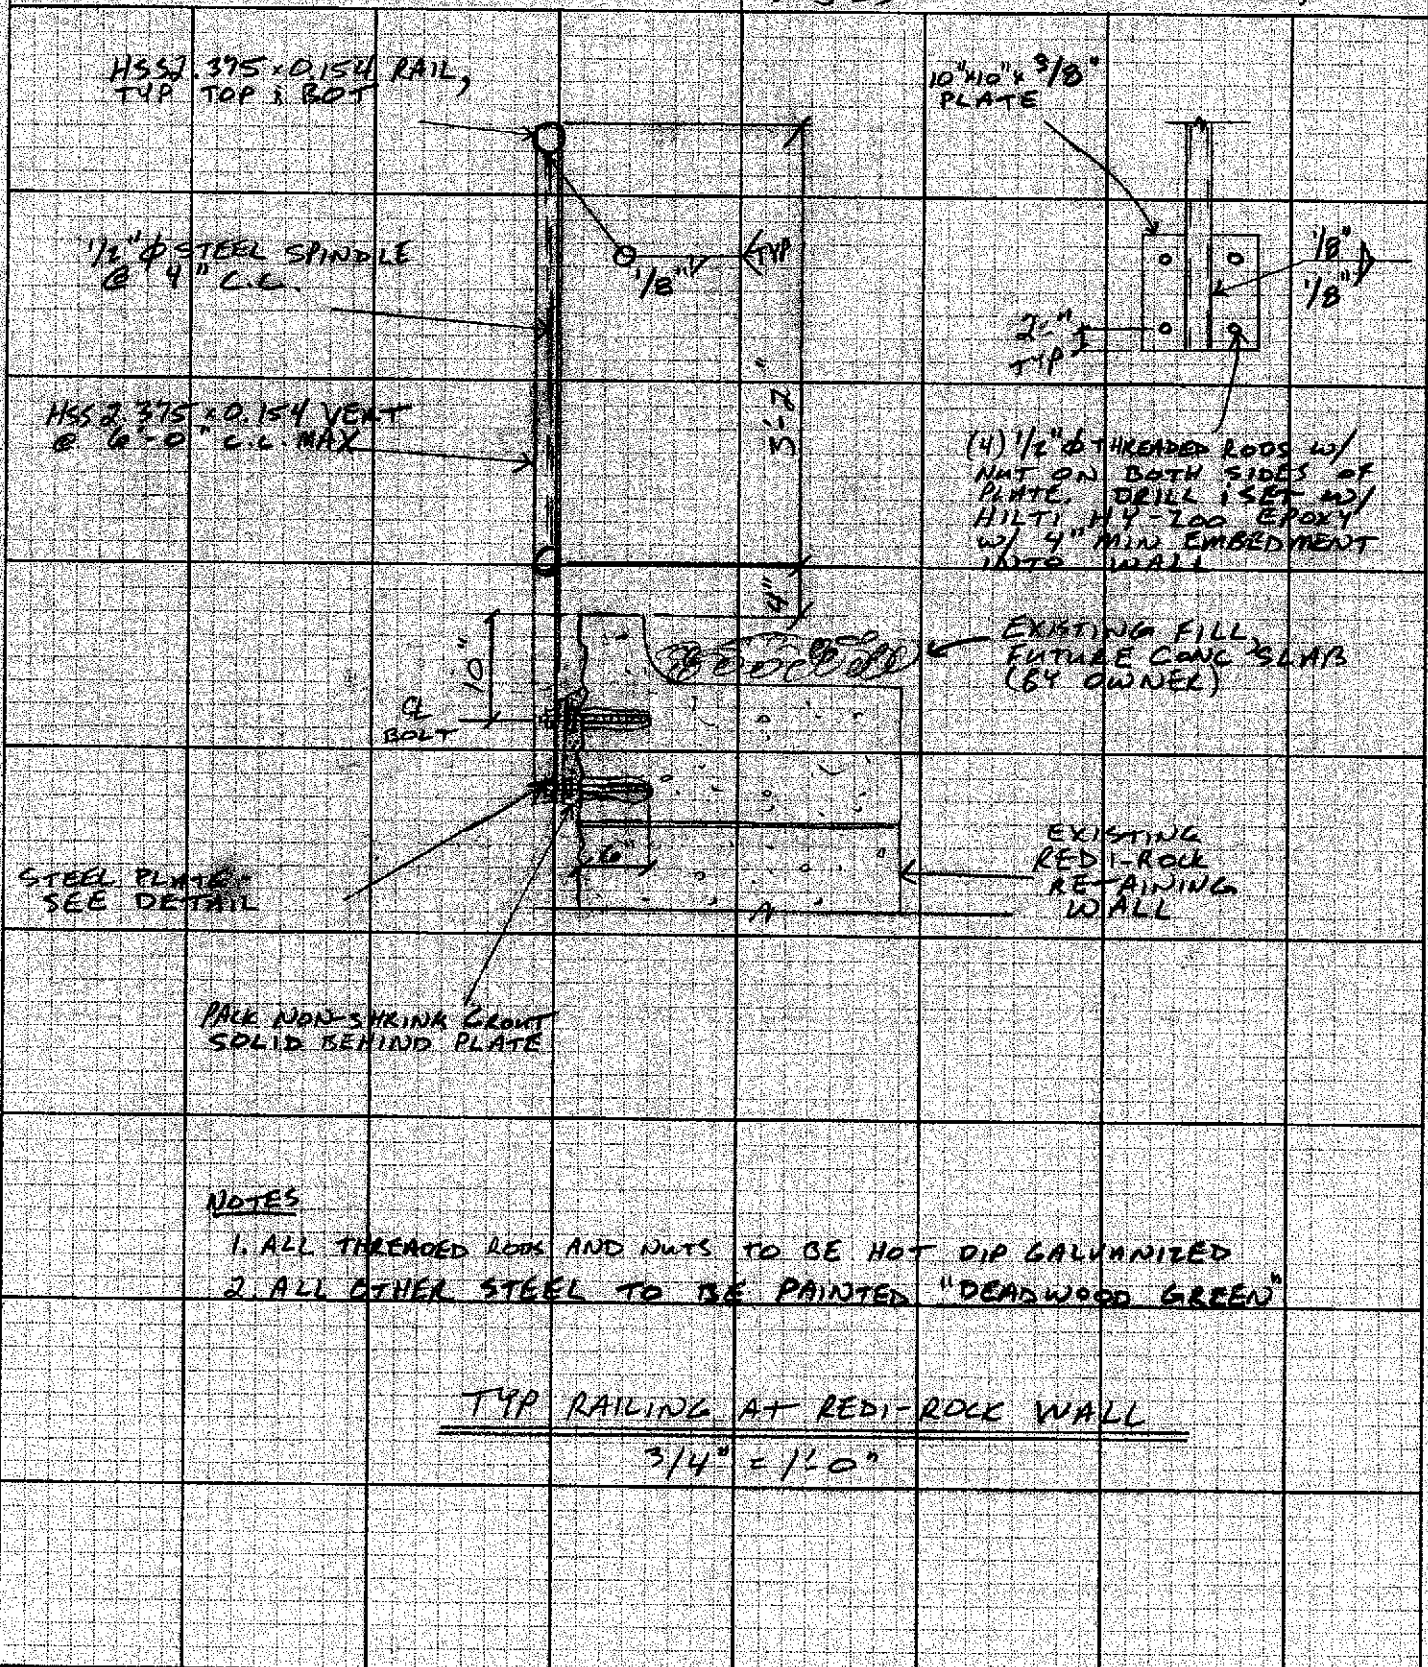 HSS2.375×0.154 RAIL,
TYP TOP & BOT
10"×10"×3/8"
PLATE
1/2"Φ STEEL SPINDLE
@ 4" C.C.
1/8"
TYP
1/8"
1/8"
2"
TYP
3'-2"
HSS2.375×0.154 VERT
@ 6'-0" C.C. MAX
(4) 1/2"Φ THREADED RODS W/
NUT ON BOTH SIDES OF
PLATE. DRILL & SET W/
HILTI HY-200 EPOXY
W/ 4" MIN EMBEDMENT
INTO WALL
4"
10"
EXISTING FILL,
FUTURE CONC SLAB
(BY OWNER)
CL
BOLT
6"
EXISTING
REDI-ROCK
RETAINING
WALL
STEEL PLATE-
SEE DETAIL
PACK NON-SHRINK GROUT
SOLID BEHIND PLATE
NOTES
1. ALL THREADED RODS AND NUTS TO BE HOT DIP GALVANIZED
2. ALL OTHER STEEL TO BE PAINTED "DEADWOOD GREEN"
TYP RAILING AT REDI-ROCK WALL
3/4" = 1'-0"